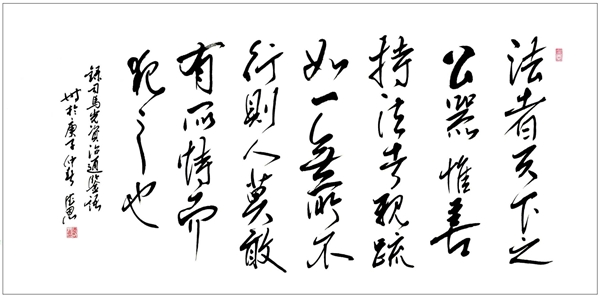 法者天下之
公器惟善
持法者親疏
如一無所不
行則人莫敢
有所恃而
犯之也
錄司馬光資治通鑒語
時於庚子仲春